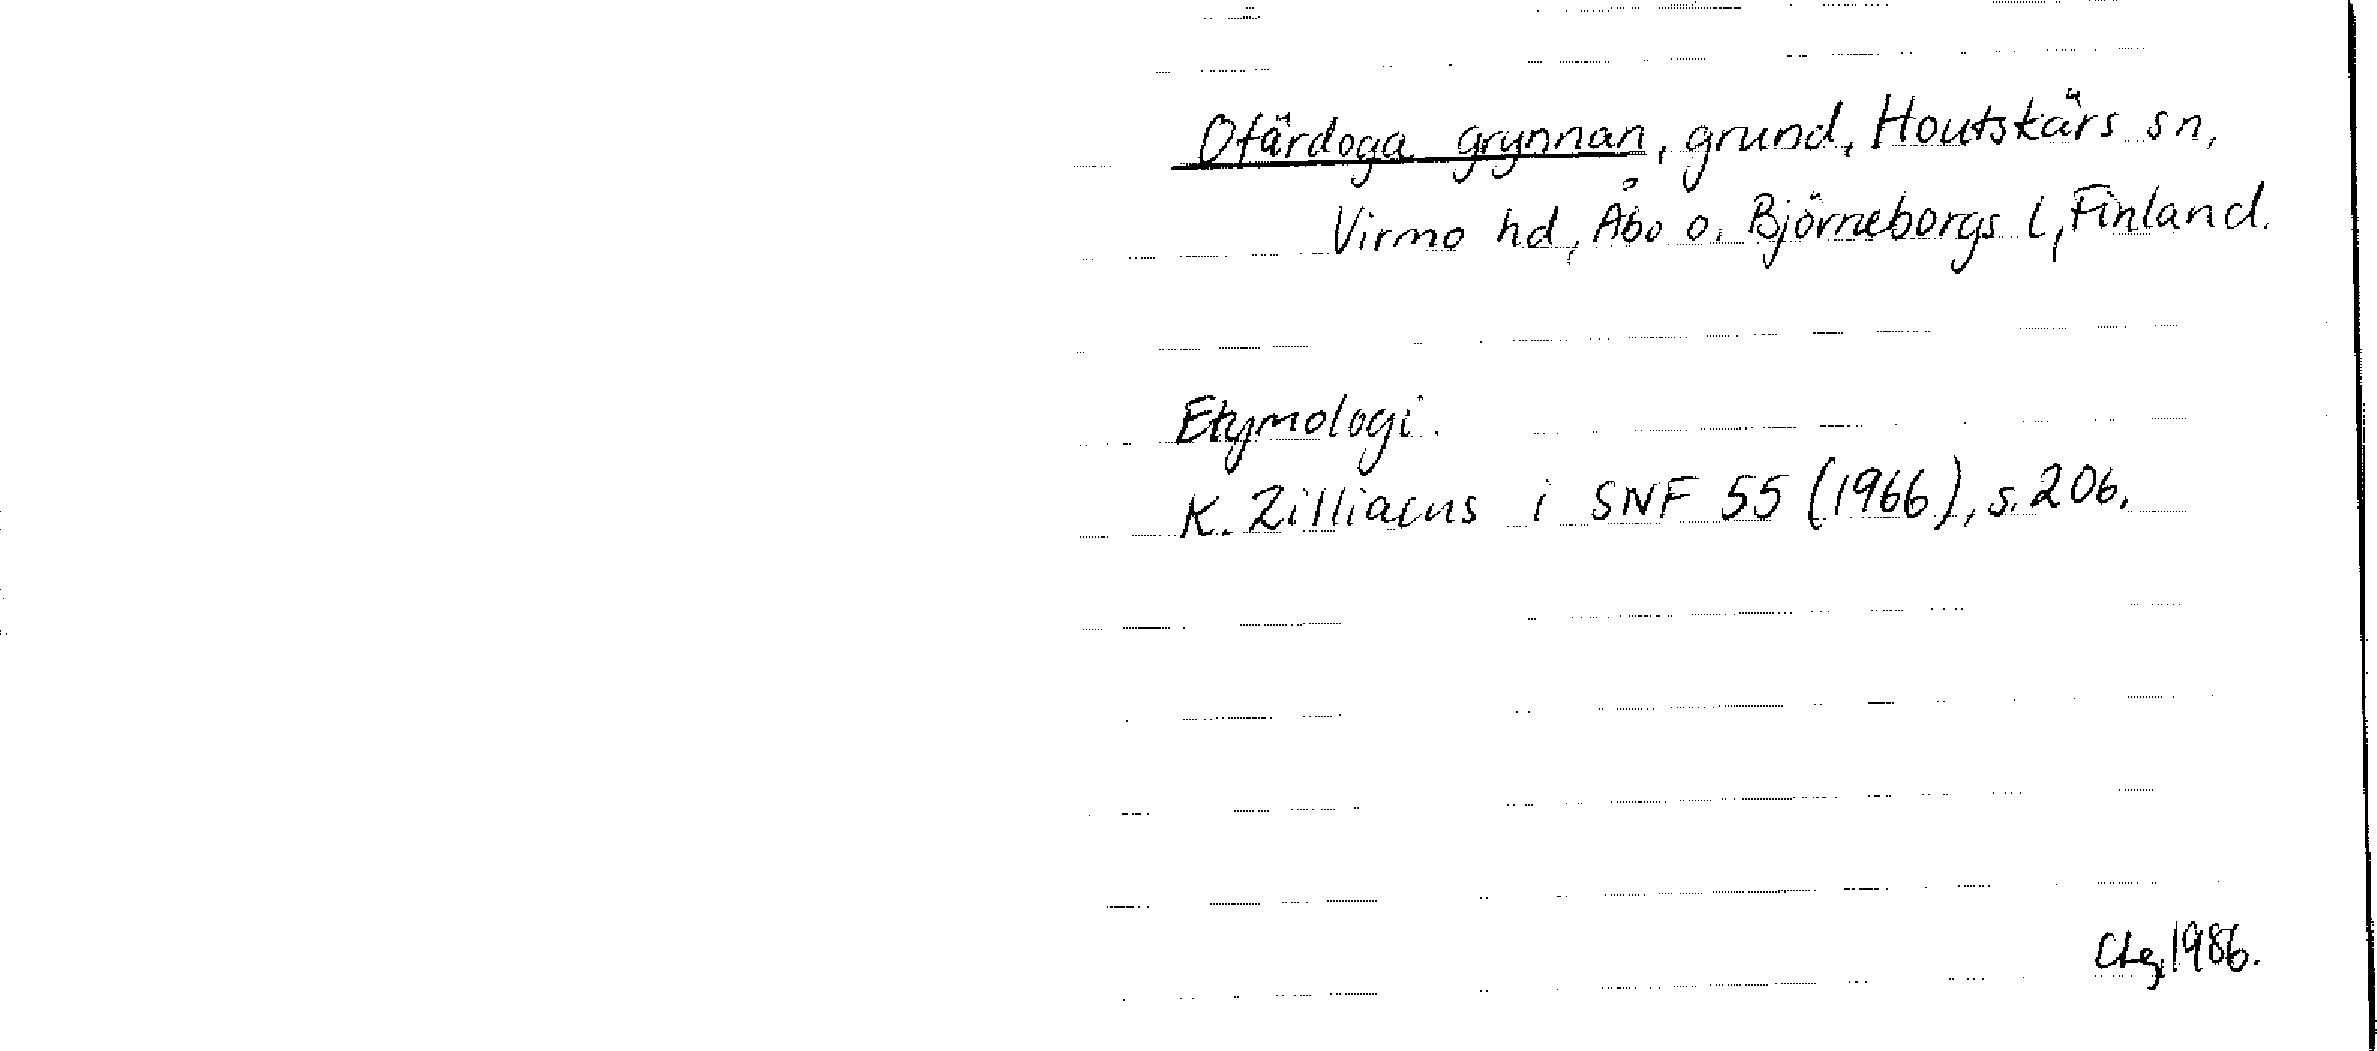 Ofärdoga grynnan, grund, Houtskärs sn,
Virmo hd, Åbo o. Björneborgs l, Finland.
Etymologi.
K. Zilliacus i SNF 55 (1966), s. 206.
1986.